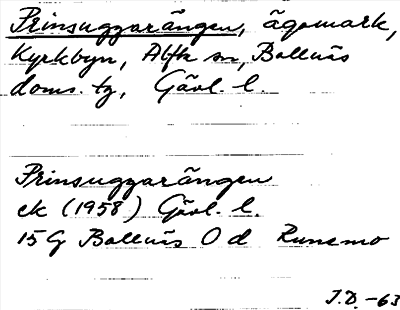 Prinsuggarängen, ägomark,
Kyrkbyn, Alfta sn, Bollnäs
doms. tg, Gävl. l.
Prinsuggarängen
ek (1958) Gävl. l.
15G Bollnäs O d Runemo
J.D. -63